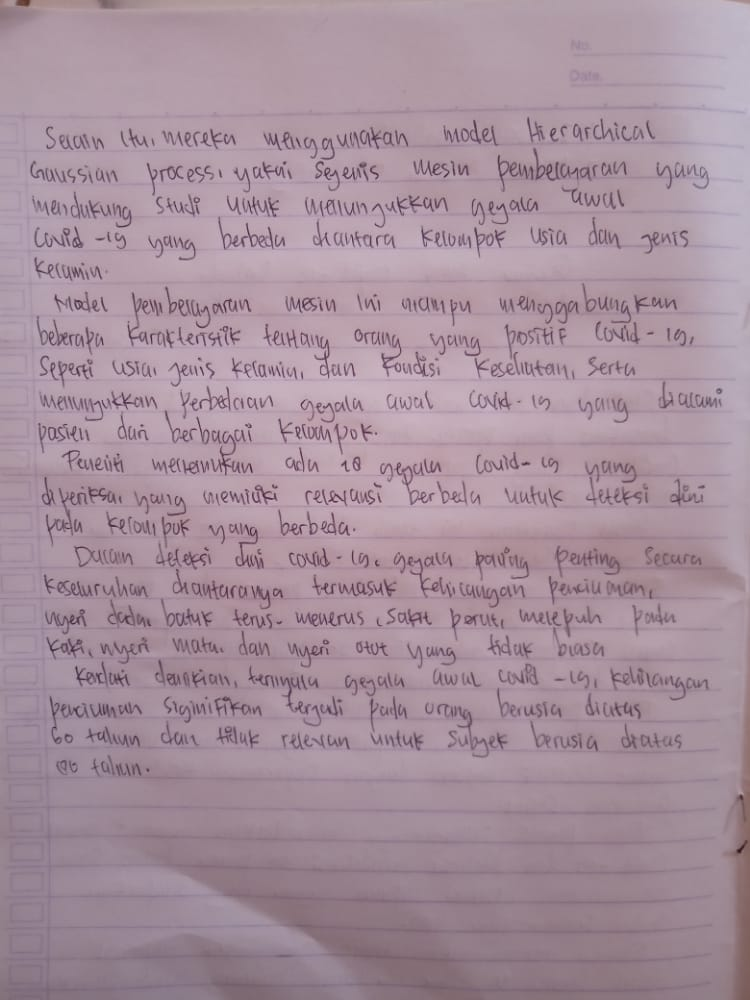 No.
Date.
Selain itu, mereka menggunakan model Hierarchical
Gaussian process, yakni sejenis mesin pembelajaran yang
mendukung studi untuk menunjukkan gejala awal
Covid-19 yang berbeda diantara kelompok usia dan jenis
kelamin.
Model pembelajaran mesin ini mampu menggabungkan
beberapa karakteristik tentang orang yang positif Covid-19,
Seperti usia, jenis kelamin, dan kondisi kesehatan, serta
menunjukkan perbedaan gejala awal covid-19 yang dialami
pasien dari berbagai kelompok.
Peneliti menemukan ada 18 gejala Covid-19 yang
diperiksa, yang memiliki relevansi berbeda untuk deteksi dini
pada kelompok yang berbeda.
Dalam deteksi dini covid-19, gejala paling penting secara
keseluruhan diantaranya termasuk kehilangan penciuman,
nyeri dada, batuk terus-menerus, sakit perut, melepuh pada
kaki, nyeri mata, dan nyeri otot yang tidak biasa
Kendati demikian, ternyata gejala awal covid-19, kehilangan
penciuman siginifikan terjadi pada orang berusia diatas
60 tahun dan tidak relevan untuk subjek berusia diatas
80 tahun.